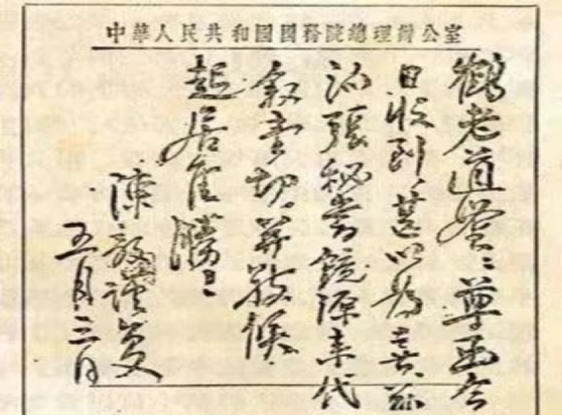 中華人民共和國國務院總理辦公室
鶴老道鑒：尊函今
日收到，甚以为喜兹
派張秘書鏡源来代
敘壹切，并敬候
起居佳勝！
陳毅謹复
五月三日